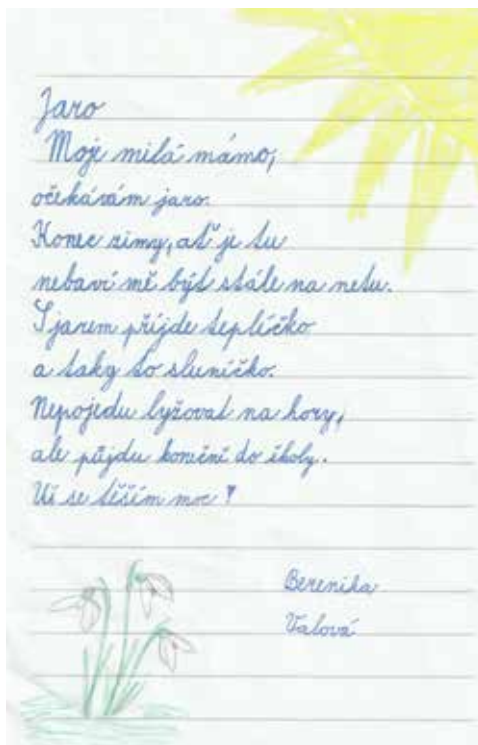 Jaro
Moje milá mámo,
očekávám jaro.
Konec zimy, ať je tu
nebaví mě být stále na netu.
S jarem přijde teplíčko
a taky to sluníčko.
Nepojedu lyžovat na hory,
ale půjdu konečně do školy.
Už se těším moc!
Berenika
Valová